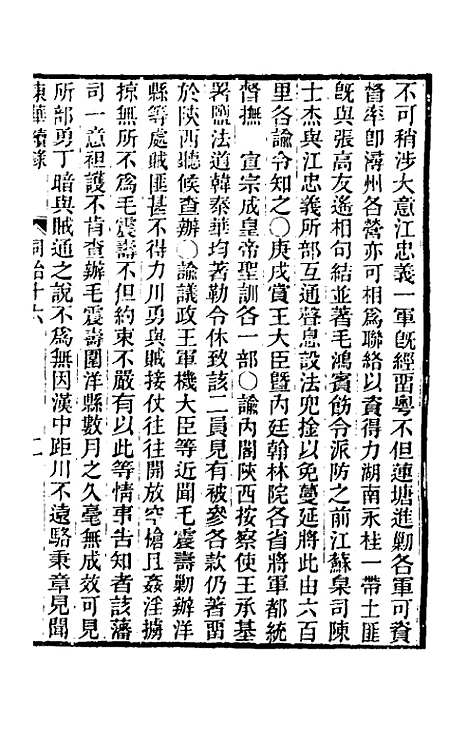 不可稍涉大意江忠義一軍既經畱粵不但蓮塘進勦各軍可資
督率卽潯州各營亦可相爲聯絡以資得力湖南永桂一帶土匪
既與張高友遙相句結並著毛鴻賓飭令派防之前江蘇臬司陳
士杰與江忠義所部互通聲息設法兜捦以免蔓延將此由六百
里各諭令知之〇庚戌賞王大臣暨內廷翰林院各省將軍都統
督撫　宣宗成皇帝聖訓各一部〇諭內閣陝西按察使王承基
署鹽法道韓泰華均著勒令休致該二員見有被參各款仍著畱
於陝西聽候查辦〇諭議政王軍機大臣等近聞毛震壽勦辦洋
縣等處賊匪甚不得力川勇與賊接仗往往開放空槍且姦淫擄
掠無所不爲毛震壽不但約束不嚴有以此等情事告知者該藩
司一意袒護不肯查辦毛震壽圍洋縣數月之久毫無成效可見
所部勇丁暗與賊通之說不爲無因漢中距川不遠駱秉章見聞
東華續錄　同治十六　二